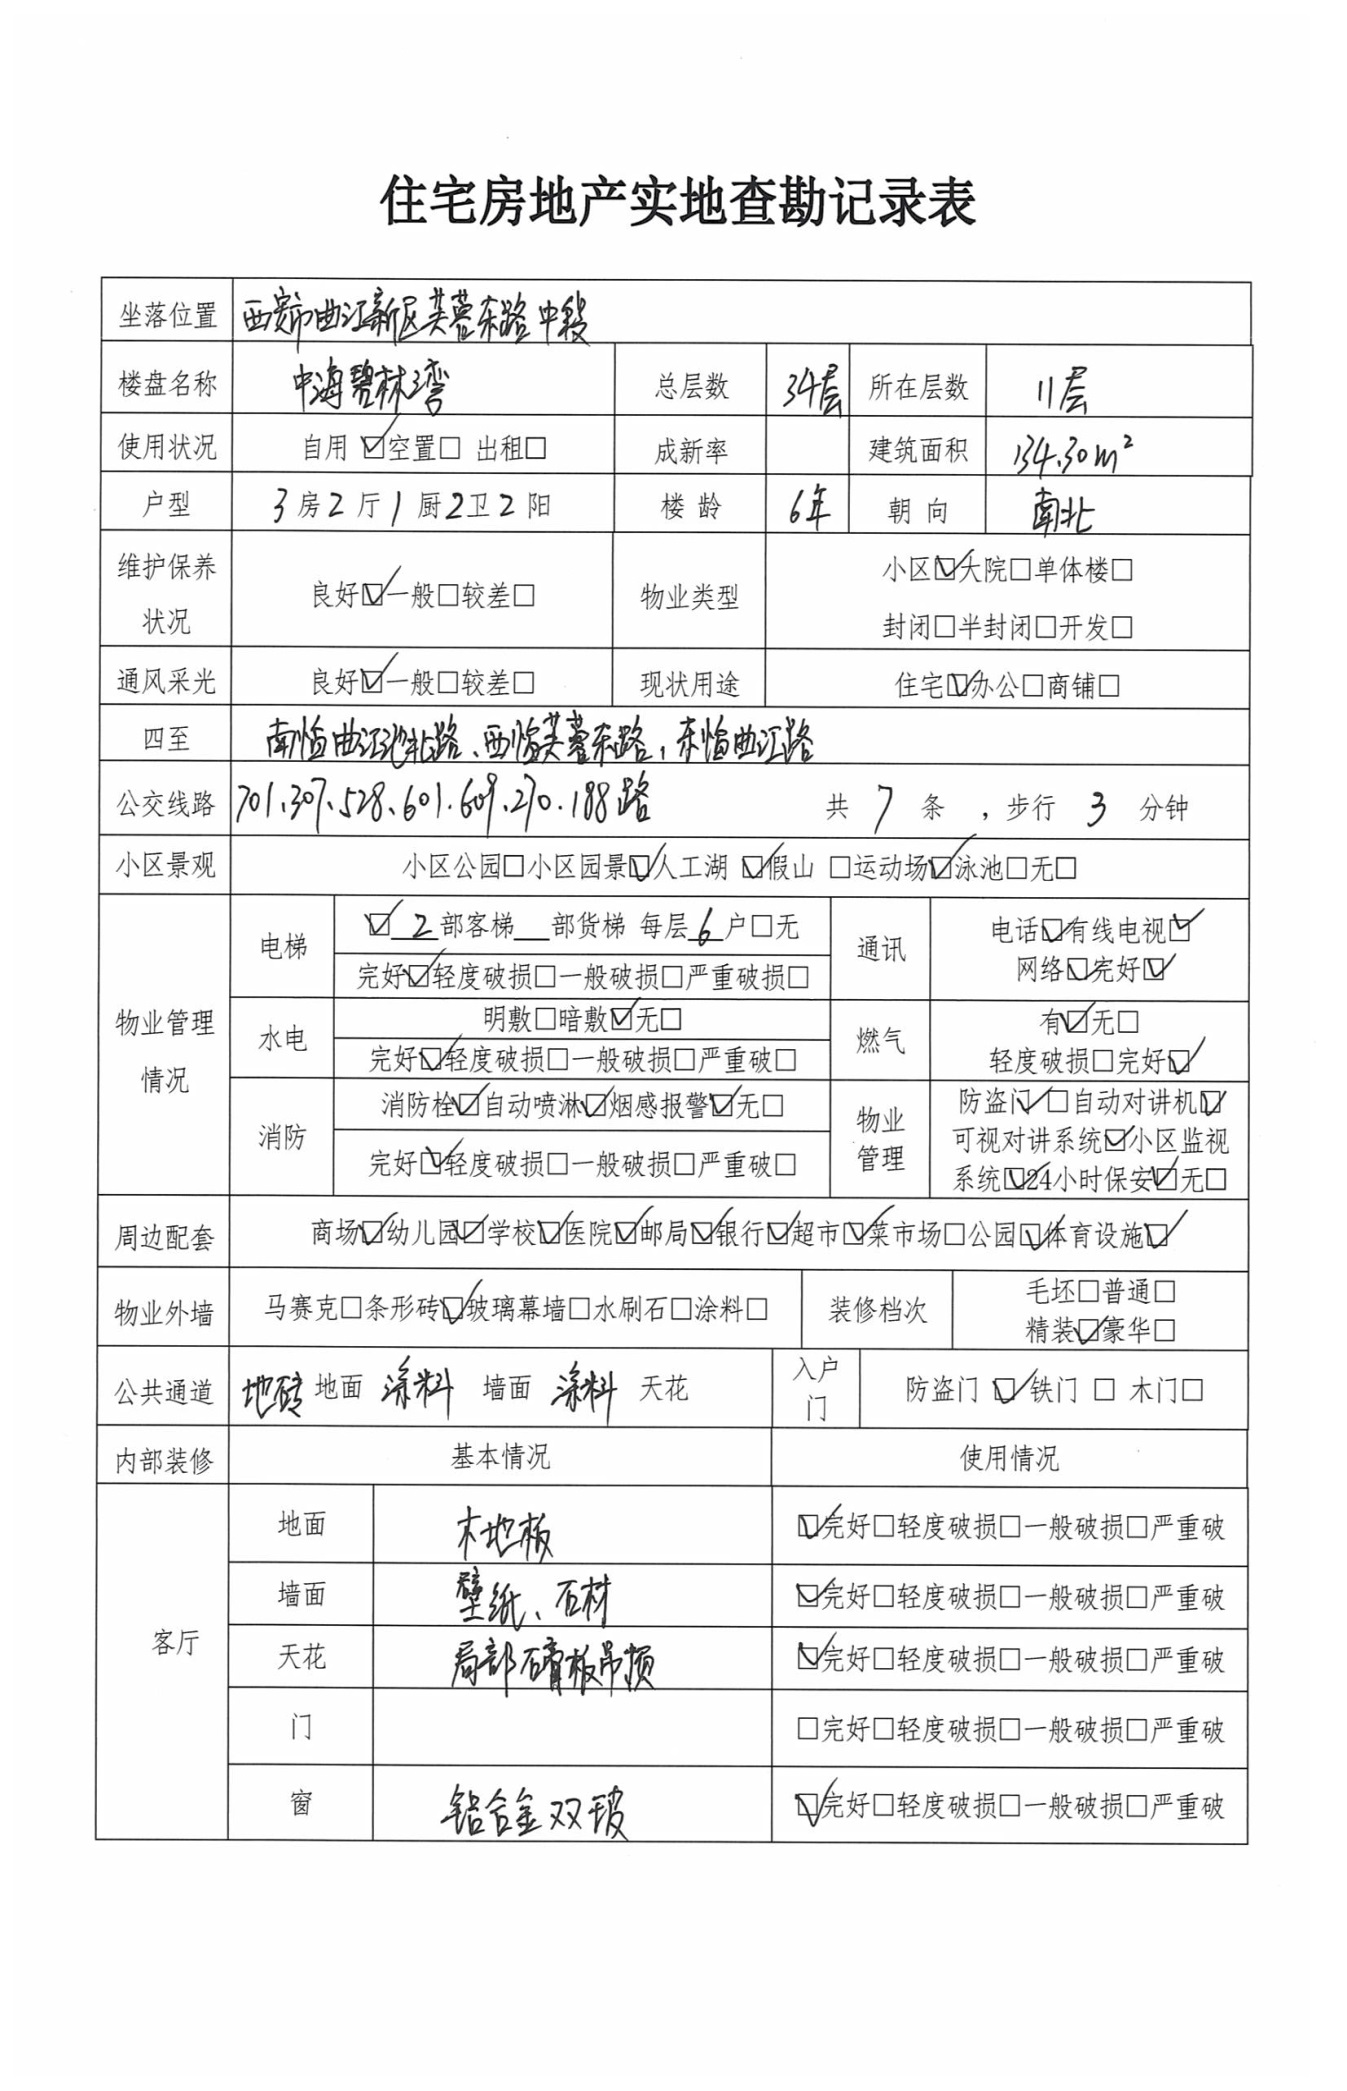 住宅房地产实地查勘记录表
坐落位置 西安市曲江新区芙蓉东路中段
楼盘名称 中海碧林湾 总层数 34层 所在层数 11层
使用状况 自用☑空置□ 出租□ 成新率 建筑面积 134.30m²
户型 3房2厅1厨2卫2阳 楼龄 6年 朝向 南北
维护保养状况 良好☑一般□较差□ 物业类型 小区☑大院□单体楼□
封闭□半封闭□开发□
通风采光 良好☑一般□较差□ 现状用途 住宅☑办公□商铺□
四至 南临曲江池北路、西临芙蓉东路,东临曲江路
公交线路 701、307、528、601、609、270、188路 共 7 条 ,步行 3 分钟
小区景观 小区公园□小区园景☑人工湖 ☑假山 □运动场☑泳池□无□
物业管理情况 电梯 ☑2部客梯__部货梯 每层6户□无
完好☑轻度破损□一般破损□严重破损□
通讯 电话☑有线电视☑
网络☑完好☑
水电 明敷□暗敷☑无□
完好☑轻度破损□一般破损□严重破□
燃气 有☑无□
轻度破损□完好☑
消防 消防栓☑自动喷淋☑烟感报警☑无□
完好☑轻度破损□一般破损□严重破□
物业管理 防盗门☑□自动对讲机☑
可视对讲系统☑小区监视
系统☑24小时保安☑无□
周边配套 商场☑幼儿园☑学校☑医院☑邮局☑银行☑超市☑菜市场□公园☑体育设施☑
物业外墙 马赛克□条形砖☑玻璃幕墙□水刷石□涂料□ 装修档次 毛坯□普通□
精装☑豪华□
公共通道 地砖 地面 涂料 墙面 涂料 天花 入户门 防盗门 ☑铁门 □ 木门□
内部装修 基本情况 使用情况
客厅 地面 木地板 ☑完好□轻度破损□一般破损□严重破
墙面 壁纸、石材 ☑完好□轻度破损□一般破损□严重破
天花 局部石膏板吊顶 ☑完好□轻度破损□一般破损□严重破
门 □完好□轻度破损□一般破损□严重破
窗 铝合金双玻 ☑完好□轻度破损□一般破损□严重破